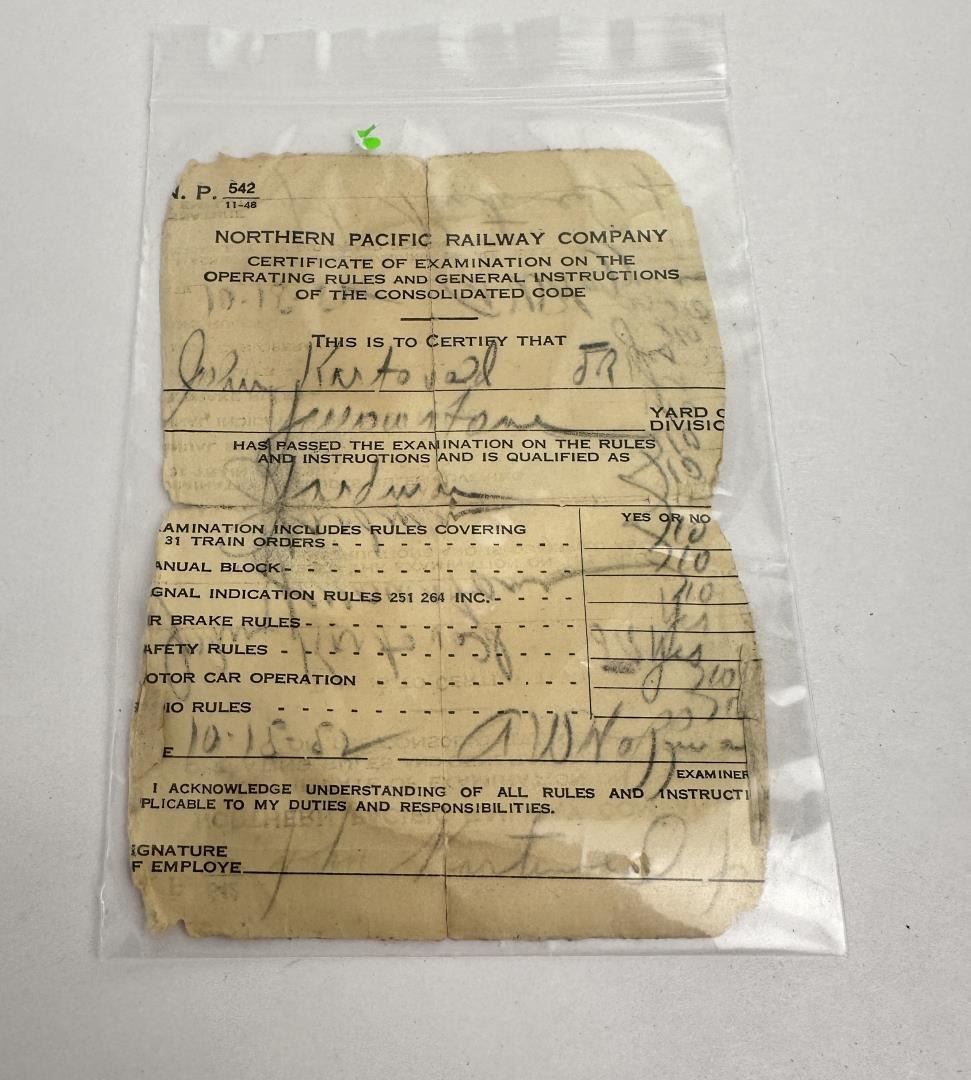 N. P. 542
11-48
NORTHERN PACIFIC RAILWAY COMPANY
CERTIFICATE OF EXAMINATION ON THE
OPERATING RULES AND GENERAL INSTRUCTIONS
OF THE CONSOLIDATED CODE
THIS IS TO CERTIFY THAT
John JR
Yellowstone YARD O
DIVISIO
HAS PASSED THE EXAMINATION ON THE RULES
AND INSTRUCTIONS AND IS QUALIFIED AS
AMINATION INCLUDES RULES COVERING YES OR NO
31 TRAIN ORDERS no
ANUAL BLOCK no
GNAL INDICATION RULES 251 264 INC. no
R BRAKE RULES yes
AFETY RULES yes
OTOR CAR OPERATION no
IO RULES
E
EXAMINER
I ACKNOWLEDGE UNDERSTANDING OF ALL RULES AND INSTRUCTI
PLICABLE TO MY DUTIES AND RESPONSIBILITIES.
IGNATURE
F EMPLOYE